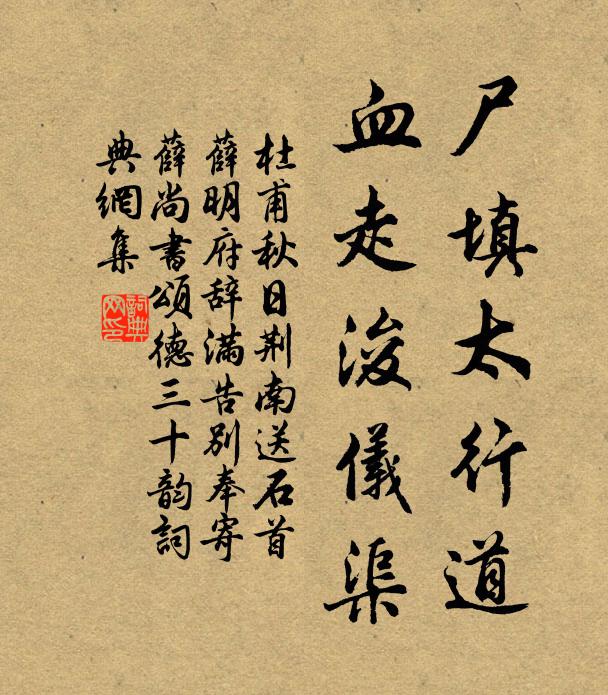 尸填太行道
血走浚仪渠
杜甫秋日荆南送石首
薛明府辞满告别奉寄
薛尚书颂德三十韵词
典网集
词典
网印